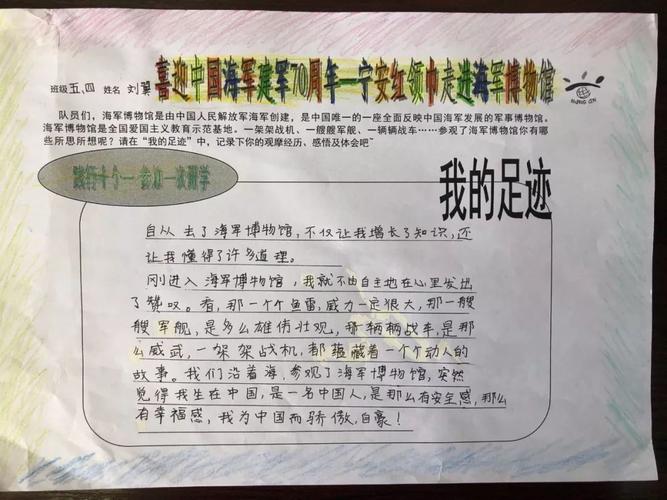 喜迎中国海军建军70周年—宁安红领巾走进海军博物馆
班级 五、四 姓名 刘翼
NING AN
队员们，海军博物馆是由中国人民解放军海军创建，是中国唯一的一座全面反映中国海军发展的军事博物馆。
海军博物馆是全国爱国主义教育示范基地。一架架战机、一艘艘军舰、一辆辆战车……参观了海军博物馆你有哪
些所思所想呢？请在“我的足迹”中，记录下你的观摩经历、感悟及体会吧~
践行十个一 参加一次研学
我的足迹
自从去了海军博物馆，不仅让我增长了知识，还
让我懂得了许多道理。
刚进入海军博物馆，我就不由自主地在心里发出
了赞叹。看，那一个个鱼雷，威力一定很大，那一艘
艘军舰，是多么雄伟壮观，那辆辆战车，是那
么威武，一架架战机，都蕴藏着一个个动人的
故事。我们沿着海，参观了海军博物馆，突然
觉得我生在中国，是一名中国人，是那么有安全感，那么
有幸福感，我为中国而骄傲，自豪！